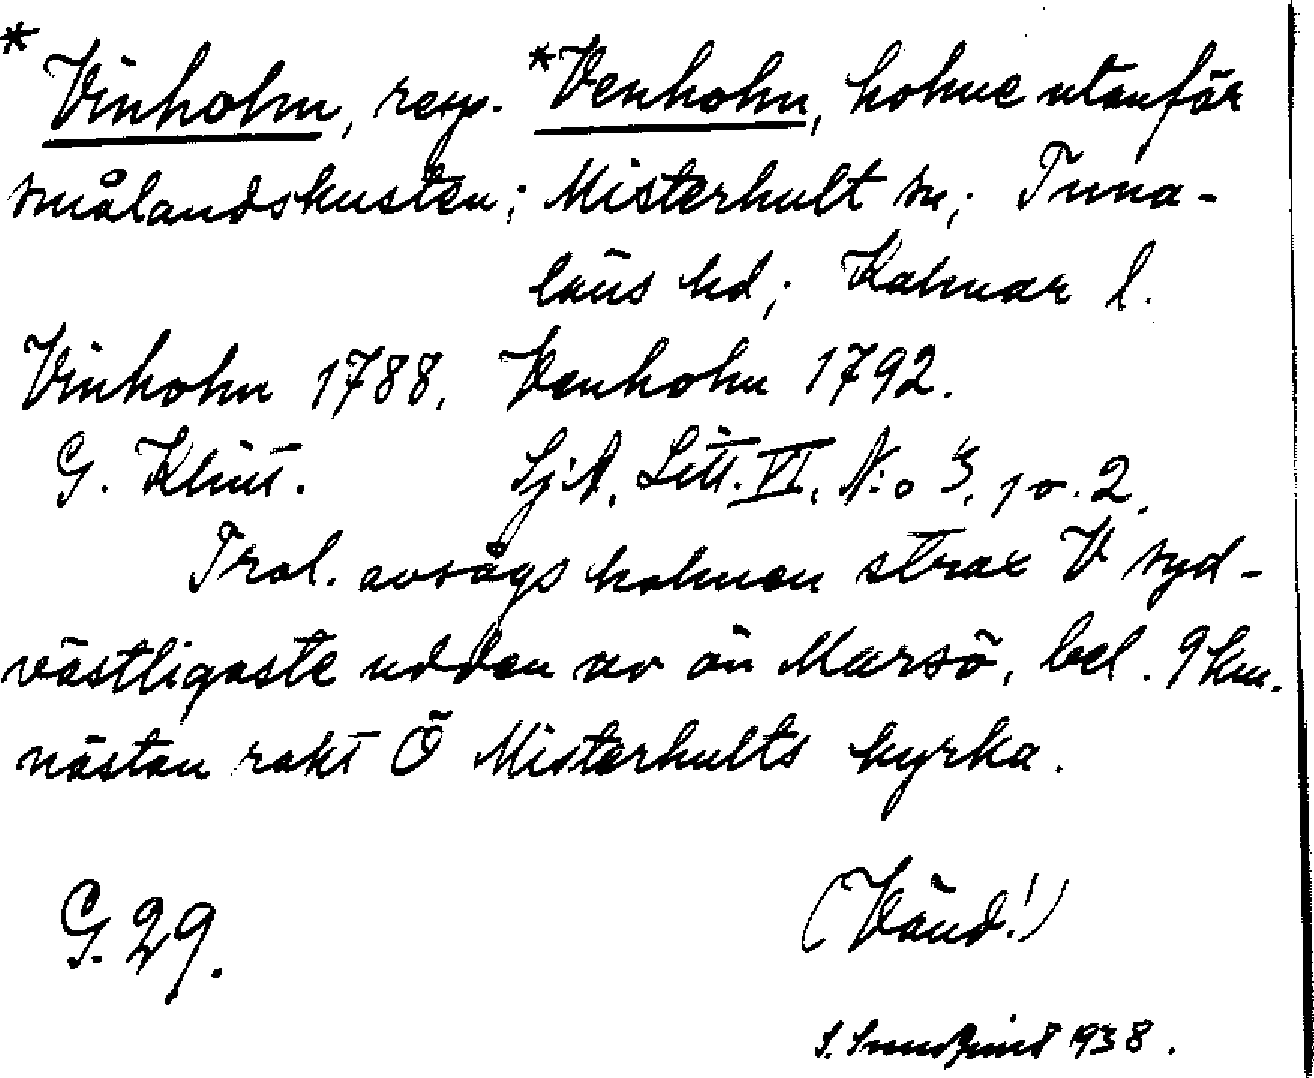 * Vinholm, resp. * Venholm, holme utanför
smålandskusten; Misterhult sn; Tuna-
läns hd; Kalmar l.
Vinholm 1788. Venholm 1792.
G. Klint. Sj.A. Litt. VI. N:o 3, 2.
Trol. avsågs holmen strax V syd-
västligaste udden av ön Marsö, bel. 9 km.
nästan rakt Ö Misterhults kyrka.
G. 29. (Vänd!)
S. 1938.